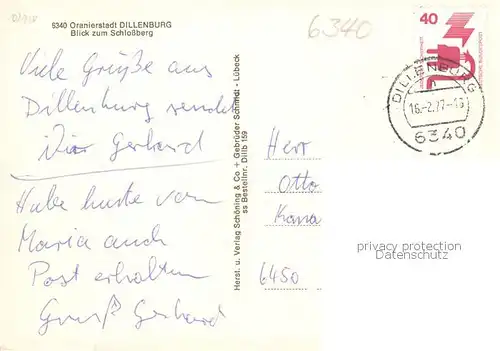 6340 Oranierstadt DILLENBURG
Blick zum Schloßberg
6340
40
DILLENBURG
16.-2.77-16
6340
Viele Grüße aus
Dillenburg sendet
Gerhard
Habe heute von
Maria auch
Post erhalten
Gruß Gerhard
Herst. u. Verlag Schöning & Co + Gebrüder Schmidt - Lübeck
ss Bestellnr. Dillb 159
Herr
Otto
Kana
6450
privacy protection
Datenschutz